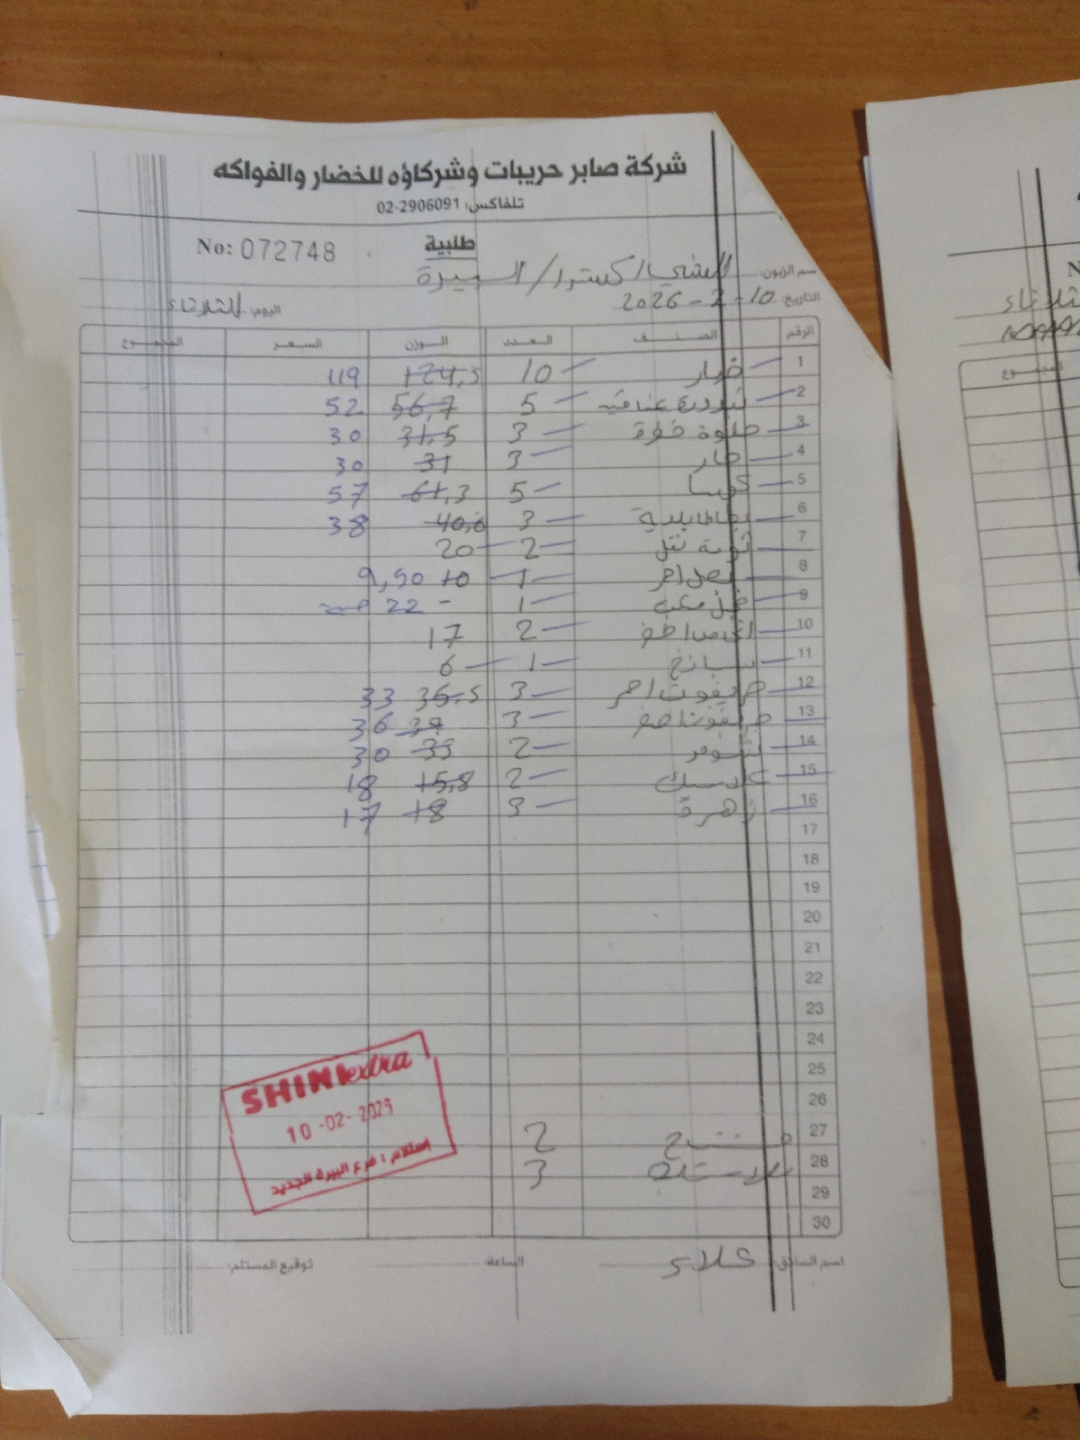 شركة صابر حريبات وشركاؤه للخضار والفواكه
تلفاكس: 02-2906091
No: 072748
طلبية
اسم الزبون: الشني اكسترا / البيرة
التاريخ: 10-2-2026 اليوم: الثلاثاء
الرقم الصنف العدد الوزن السعر المجموع
1 خيار 10 124,5 119
2 بندورة عناقيد 5 56,7 52
3 حلوة 3 31,5 30
4 حار 3 31 30
5 كوسا 5 61,3 57
6 بطاطا بلدية 3 40,6 38
7 ثومة 2 20
8 بصل احمر 1 10 9,50
9 1 - 22
10 2 17
11 سبانخ 1 6
12 جريفوت احمر 3 36,5 33
13 3 39 36
14 شومر 2 33 30
15 2 15,8 18
16 زهرة 3 18 17
17
18
19
20
21
22
23
24
25
26
27 2
28 بلاستك 3
29
30
SHINI extra
10-02-2026
إستلام : فرع البيرة الجديد
اسم السائق: علاء الساعة: توقيع المستلم: